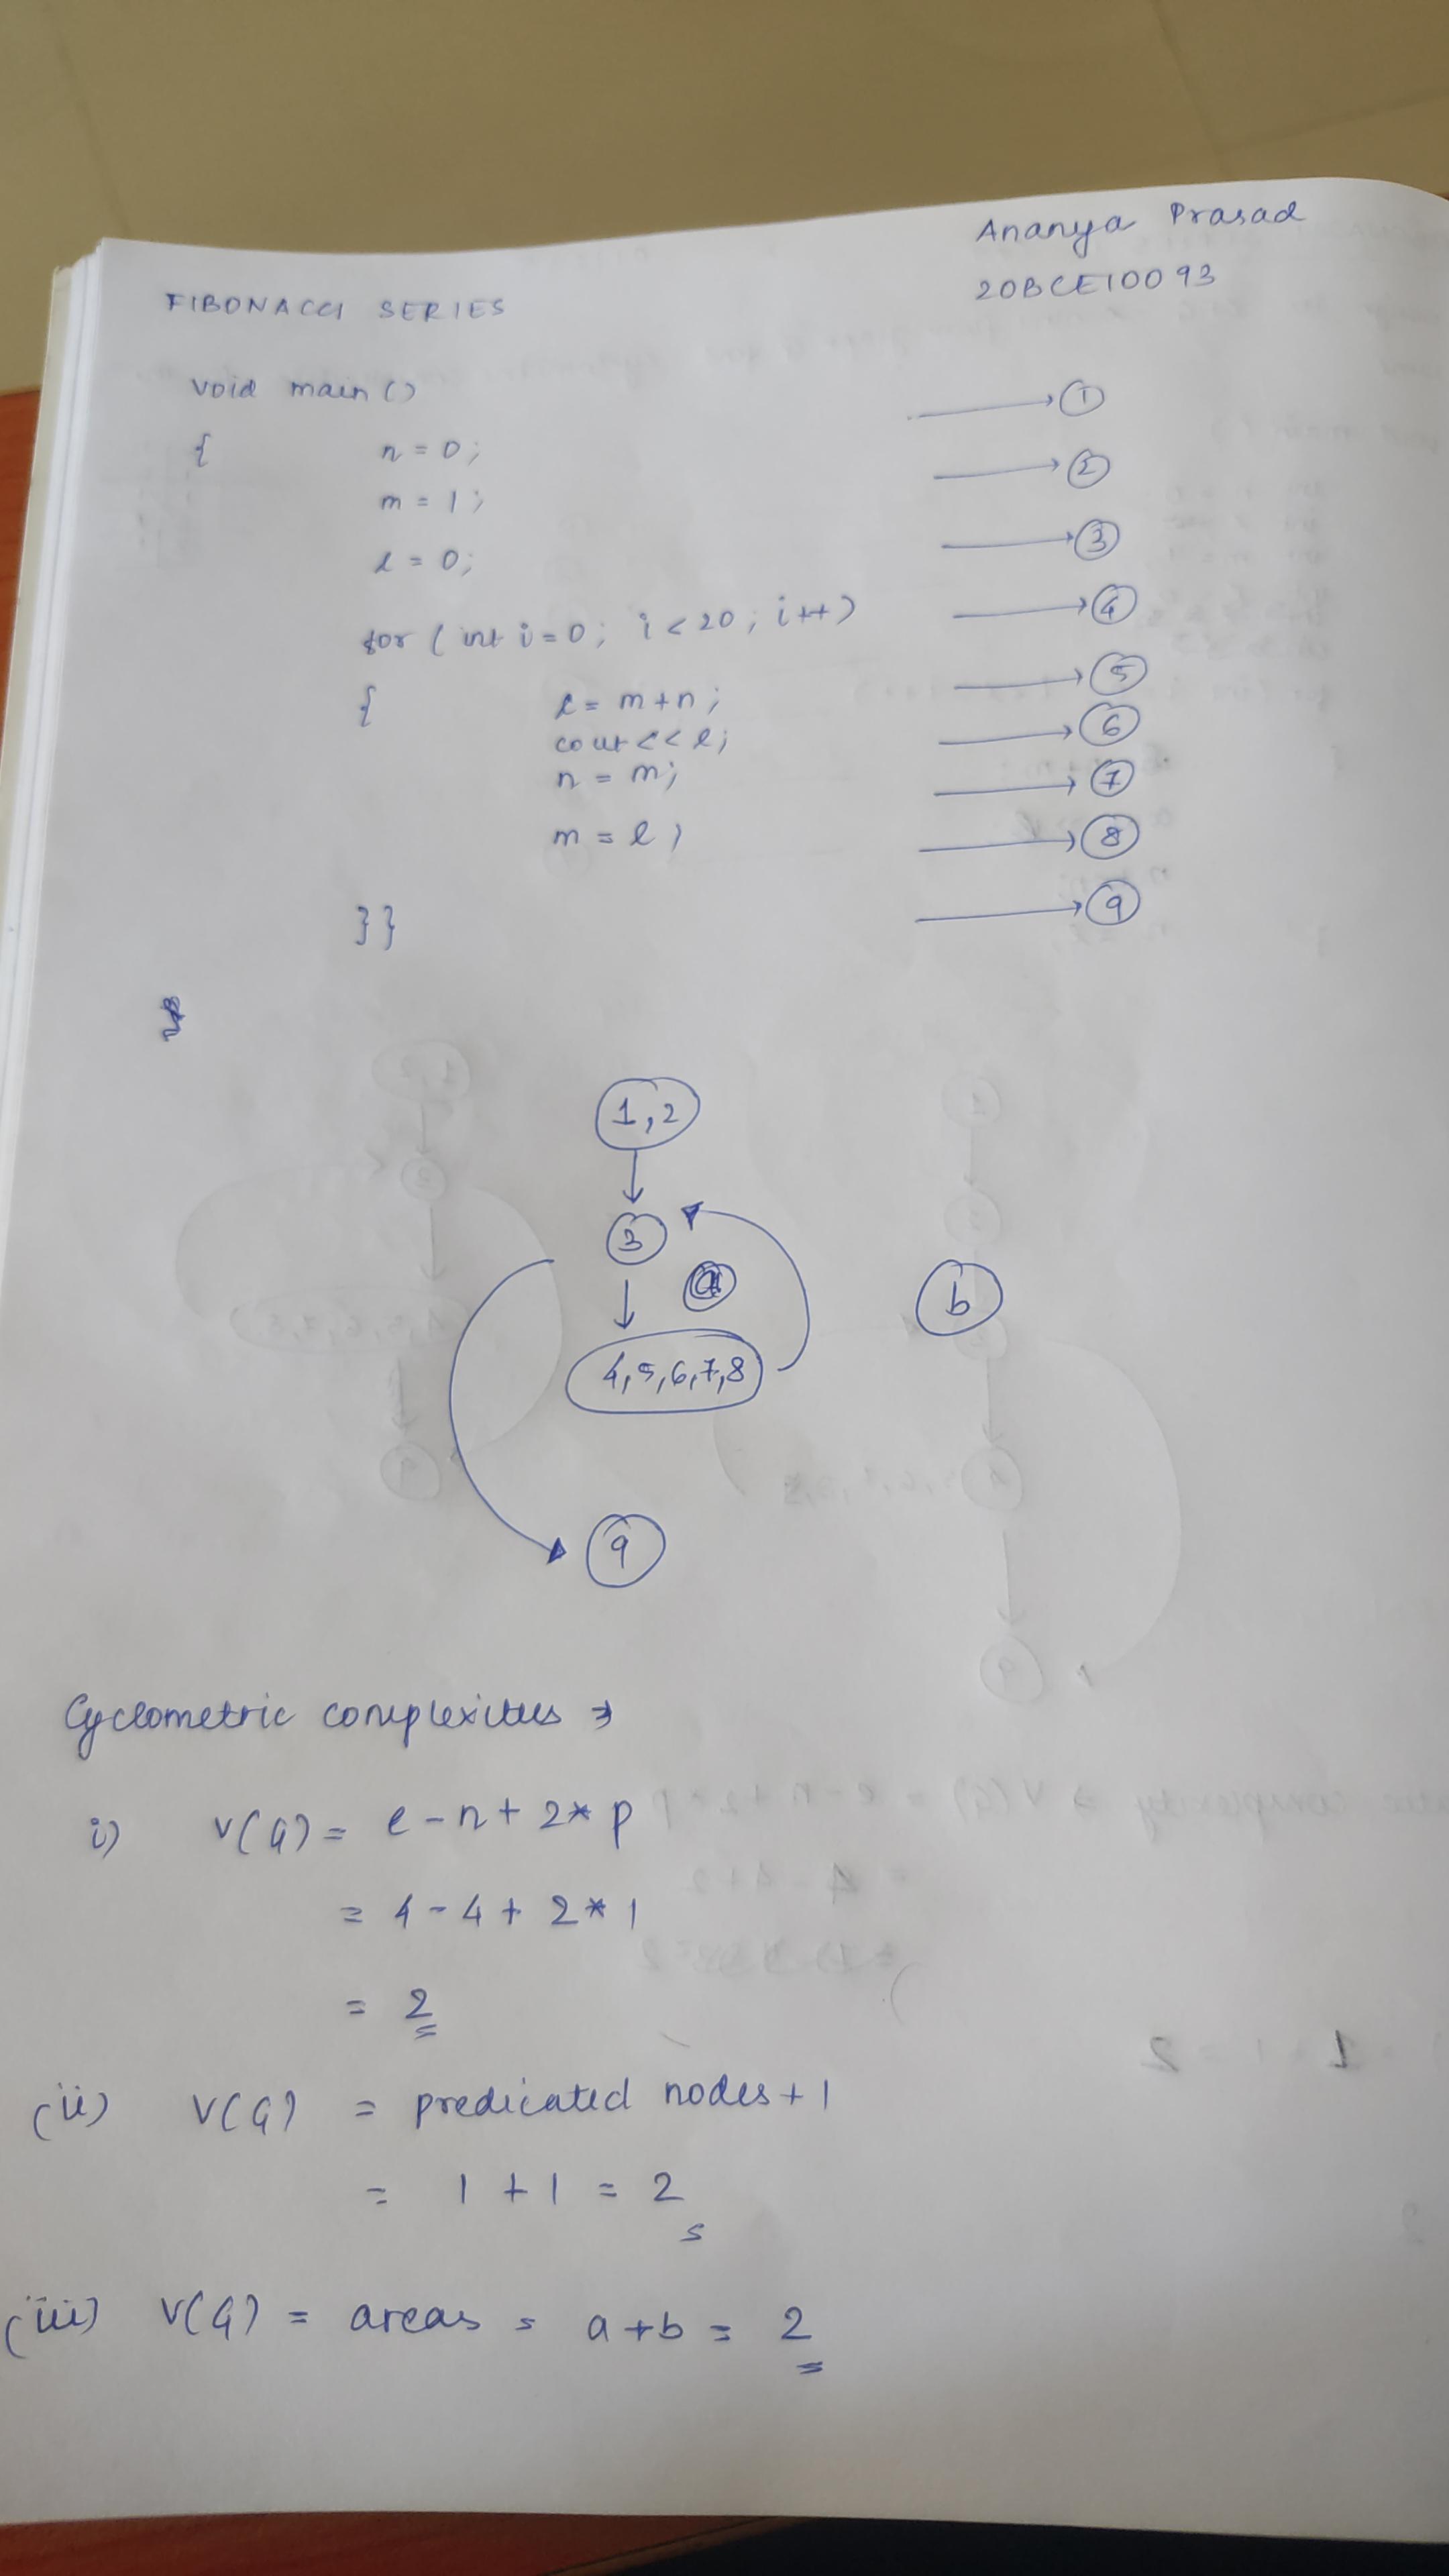 Ananya Prasad
20BCE10093
FIBONACCI SERIES
void main ()
→ 1
{ n = 0;
→ 2
m = 1;
→ 3
l = 0;
for ( int i = 0; i < 20; i++) → 4
{ l = m+n; → 5
cout << l; → 6
n = m; → 7
m = l; → 8
}} → 9
1,2
3
a
b
4,5,6,7,8
9
Cyclometric complexities ⇒
i) V(G) = e - n + 2* p
= 4 - 4 + 2 * 1
= 2
(ii) V(G) = predicated nodes + 1
= 1 + 1 = 2
(iii) V(G) = areas = a + b = 2